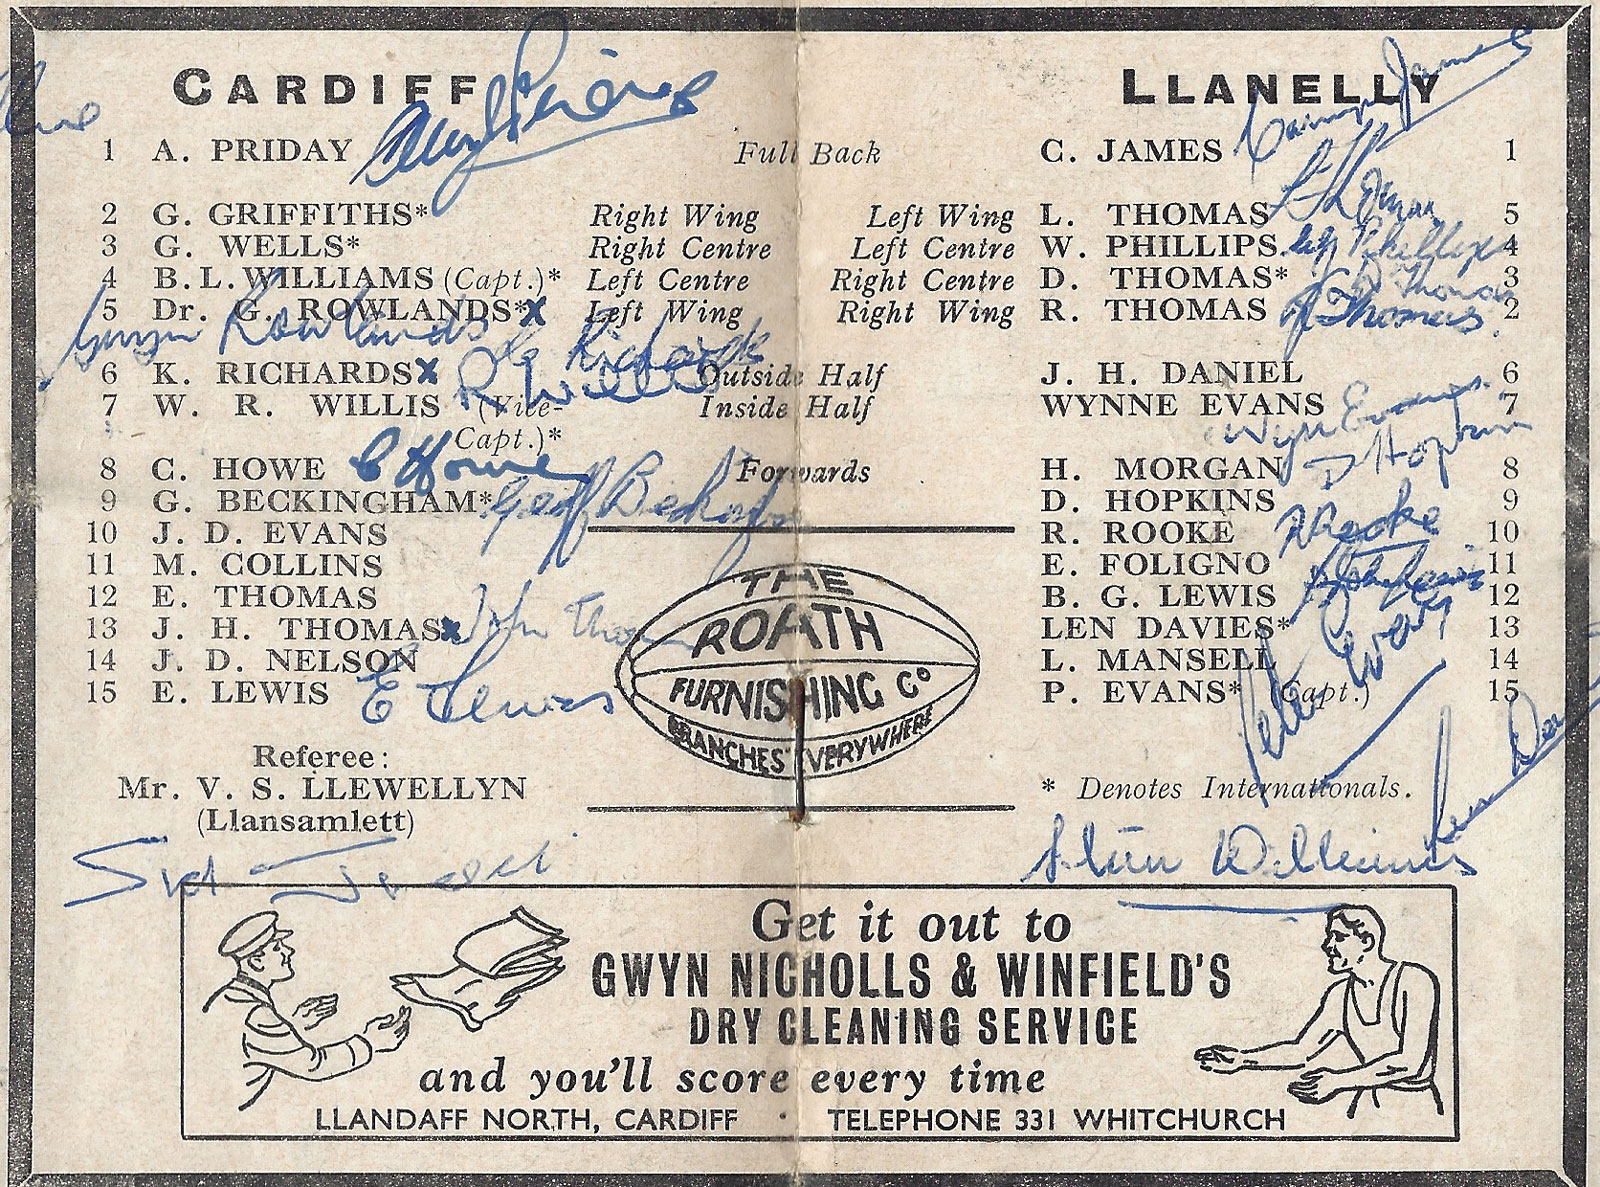 CARDIFF LLANELLY
1 A. PRIDAY Full Back C. JAMES 1
2 G. GRIFFITHS* Right Wing Left Wing L. THOMAS 5
3 G. WELLS* Right Centre Left Centre W. PHILLIPS 4
4 B. L. WILLIAMS (Capt.)* Left Centre Right Centre D. THOMAS* 3
5 Dr. G. ROWLANDS* x Left Wing Right Wing R. THOMAS 2
Gwyn Rowlands R Thomas
K Richards
6 K. RICHARDS x Outside Half J. H. DANIEL 6
R Willis
7 W. R. WILLIS (Vice- Inside Half WYNNE EVANS 7
Capt.)* Wyn Evans
D Hopkins
8 C. HOWE C Howe Forwards H. MORGAN 8
9 G. BECKINGHAM* Geoff Beckingham D. HOPKINS 9
10 J. D. EVANS R. ROOKE R Rooke 10
11 M. COLLINS E. FOLIGNO 11
12 E. THOMAS B. G. LEWIS 12
13 J. H. THOMAS x John Thomas LEN DAVIES* 13
14 J. D. NELSON L. MANSELL 14
15 E. LEWIS E Lewis P. EVANS* (Capt.) 15
Peter Evans
THE
ROATH
FURNISHING Co
BRANCHES EVERYWHERE
Referee:
Mr. V. S. LLEWELLYN
(Llansamlett)
* Denotes Internationals.
Stan Williams
Get it out to
GWYN NICHOLLS & WINFIELD'S
DRY CLEANING SERVICE
and you'll score every time
LLANDAFF NORTH, CARDIFF · TELEPHONE 331 WHITCHURCH